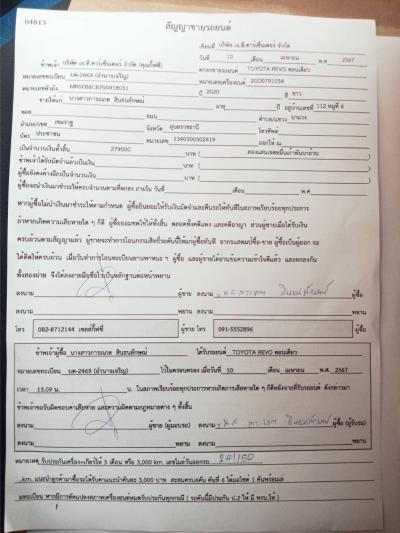 04813
สัญญาขายรถยนต์
เขียนที่ บริษัท เจ.ที.คาร์เซ็นเตอร์ จำกัด
ข้าพเจ้า บริษัท เจ.ที.คาร์เซ็นเตอร์ จำกัด (คุณกิ๊ฟซี่) วันที่ 10 เดือน เมษายน พ.ศ. 2567
หมายเลขทะเบียน บต-2469 (อำนาจเจริญ) ตกลงขายรถยนต์ TOYOTA REVO ตอนเดียว
หมายเลขตัวถัง หมายเลขเครื่องยนต์
ปี 2020 สี ขาว
ขายให้แก่ นางสาวการะเกด สินรนลักษณ์ อายุ ปี อยู่บ้านเลขที่ 112 หมู่ที่ 6
ซอย ถนน ตำบล/แขวง นาแวง
อำเภอ/เขต เขมราฐ จังหวัด อุบลราชธานี โทรศัพท์
บัตร ประชาชน หมายเลข 1340500302419 ออกให้ ณ
เป็นจำนวนเงินทั้งสิ้น 279000 บาท ( สองแสนเจ็ดหมื่นเก้าพันบาทถ้วน
ข้าพเจ้าได้รับมัดจำแล้วเป็นเงิน บาท ( )
ผู้ซื้อยังคงค้างอีกเป็นจำนวนเงิน บาท ( )
ผู้ซื้อจะนำเงินมาชำระให้ครบจำนวนตามที่ตกลง ภายใน วันที่ เดือน พ.ศ.
หากผู้ซื้อไม่นำเงินมาชำระให้ตามกำหนด ผู้ซื้อยินยอมให้รับเงินมัดจำและคืนรถให้ทันทีในสภาพเรียบร้อยทุกประการ
ถ้าหากเกิดความเสียหายใด ๆ ก็ดี ผู้ซื้อยอมชดใช้ให้ทั้งสิ้น ตลอดทั้งคดีแพ่ง และคดีอาญา ส่วนผู้ขายเมื่อได้รับเงิน
ครบถ้วนตามสัญญาแล้ว ผู้ขายจะทำการโอนกรรมสิทธิ์รถคันนี้ให้แก่ผู้ซื้อทันที ผู้ซื้อเป็นผู้ออก จะ
ผู้ซื้อ และผู้ขายได้อ่านข้อความเข้าใจดีแล้ว และตกลงกัน
ทั้งสองฝ่าย จึงได้ลงลายมือชื่อไว้เป็นหลักฐานต่อหน้าพยาน
ลงนาม ผู้ขาย ลงนาม ผู้ซื้อ
ลงนาม พยาน ลงนาม พยาน
โทร 082-8712144 เซลล์กิ๊ฟซี่ ผู้ขาย โทร 091-5552896 ผู้ซื้อ
ข้าพเจ้าผู้ซื้อ นางสาวการะเกด สินรนลักษณ์ ได้รับรถยนต์ TOYOTA REVO ตอนเดียว
หมายเลขทะเบียน บต-2469 (อำนาจเจริญ) ไว้ในครอบครอง เมื่อวันที่ 10 เดือน เมษายน พ.ศ. 2567
เวลา 13.09 น. ในสภาพเรียบร้อยทุกประการหากเกิดการเสียหายใด ๆ ก็ดีหลังจากที่รับรถยนต์ ดังกล่าวมา
ข้าพเจ้าขอรับผิดชอบค่าเสียหาย และความผิดตามกฎหมายต่าง ๆ ทั้งสิ้น
ลงนาม ผู้ขาย (ผู้มอบรถ) ลงนาม ผู้ซื้อ (ผู้รับรถ)
ลงนาม พยาน ลงนาม พยาน
หมายเหตุ รับประกันเครื่อง+เกียร์ให้ 3 เดือน หรือ 3,000 km. เลขไมล์วันออกรถ 241150
km. แนะนำลูกค้ามาซื้อรถได้รับค่าแนะนำคันละ 3,000 บาท สะสมครบ6คัน คันที่ 6 ได้มอไซค์ 1 คันพร้อมเล่
มทะเบียน หากมีการดัดแปลงสภาพเครื่องยนต์หมดรับประกันทุกกรณี ( รถคันนี้มีประกัน ป.2 ให้ มี พรบ.ให้ )